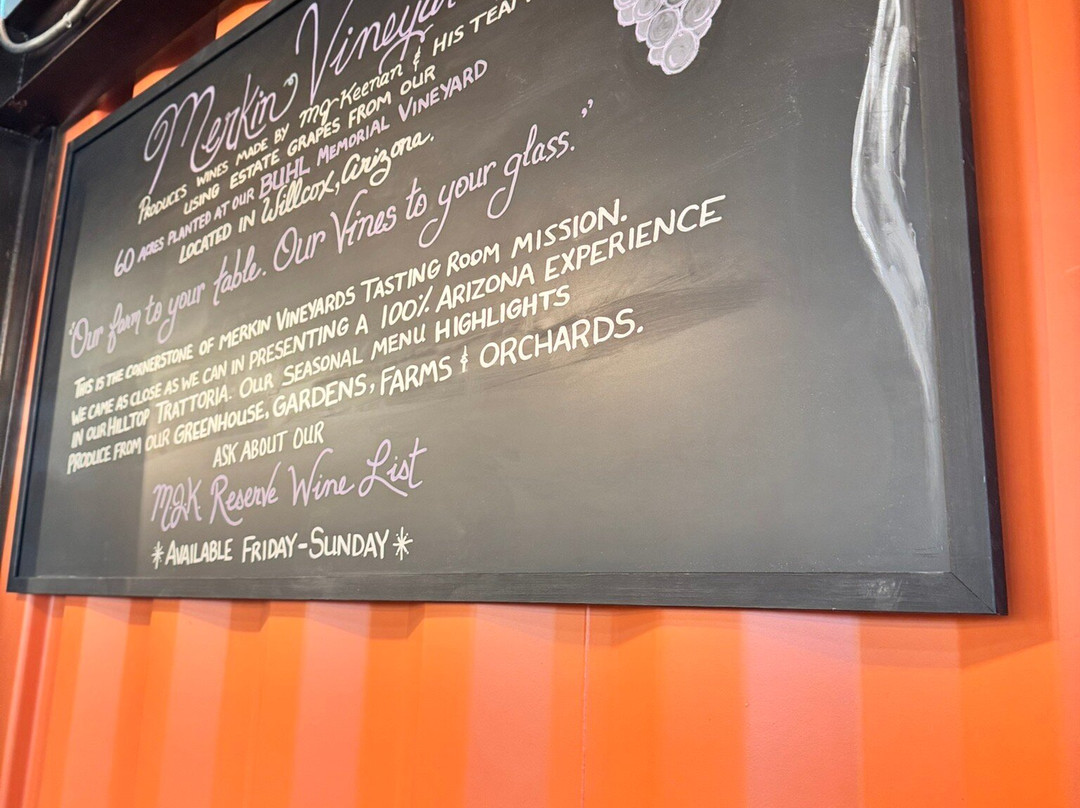 Merkin Vineyar
PRODUCES WINES MADE BY MJ-Keenan & HIS TEAM
USING ESTATE GRAPES FROM OUR
60 ACRES PLANTED AT OUR BUHL MEMORIAL VINEYARD
LOCATED IN Willcox, Arizona.
"Our farm to your table. Our Vines to your glass."
THIS IS THE CORNERSTONE OF MERKIN VINEYARDS TASTING ROOM MISSION.
WE CAME AS CLOSE AS WE CAN IN PRESENTING A 100% ARIZONA EXPERIENCE
IN OUR HILLTOP TRATTORIA. OUR SEASONAL MENU HIGHLIGHTS
PRODUCE FROM OUR GREENHOUSE, GARDENS, FARMS & ORCHARDS.
ASK ABOUT OUR
M.J.K. Reserve Wine List
*AVAILABLE FRIDAY-SUNDAY*